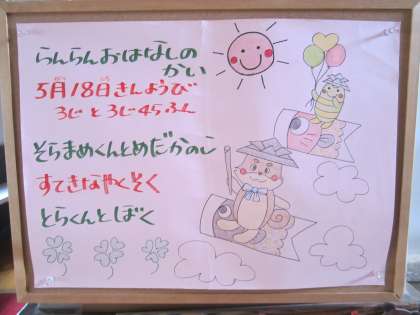 らんらんおはなしの
かい
5月18日きんようび
3じと3じ45ふん
そらまめくんとめだかのこ
すてきなやくそく
とらくんとぼく